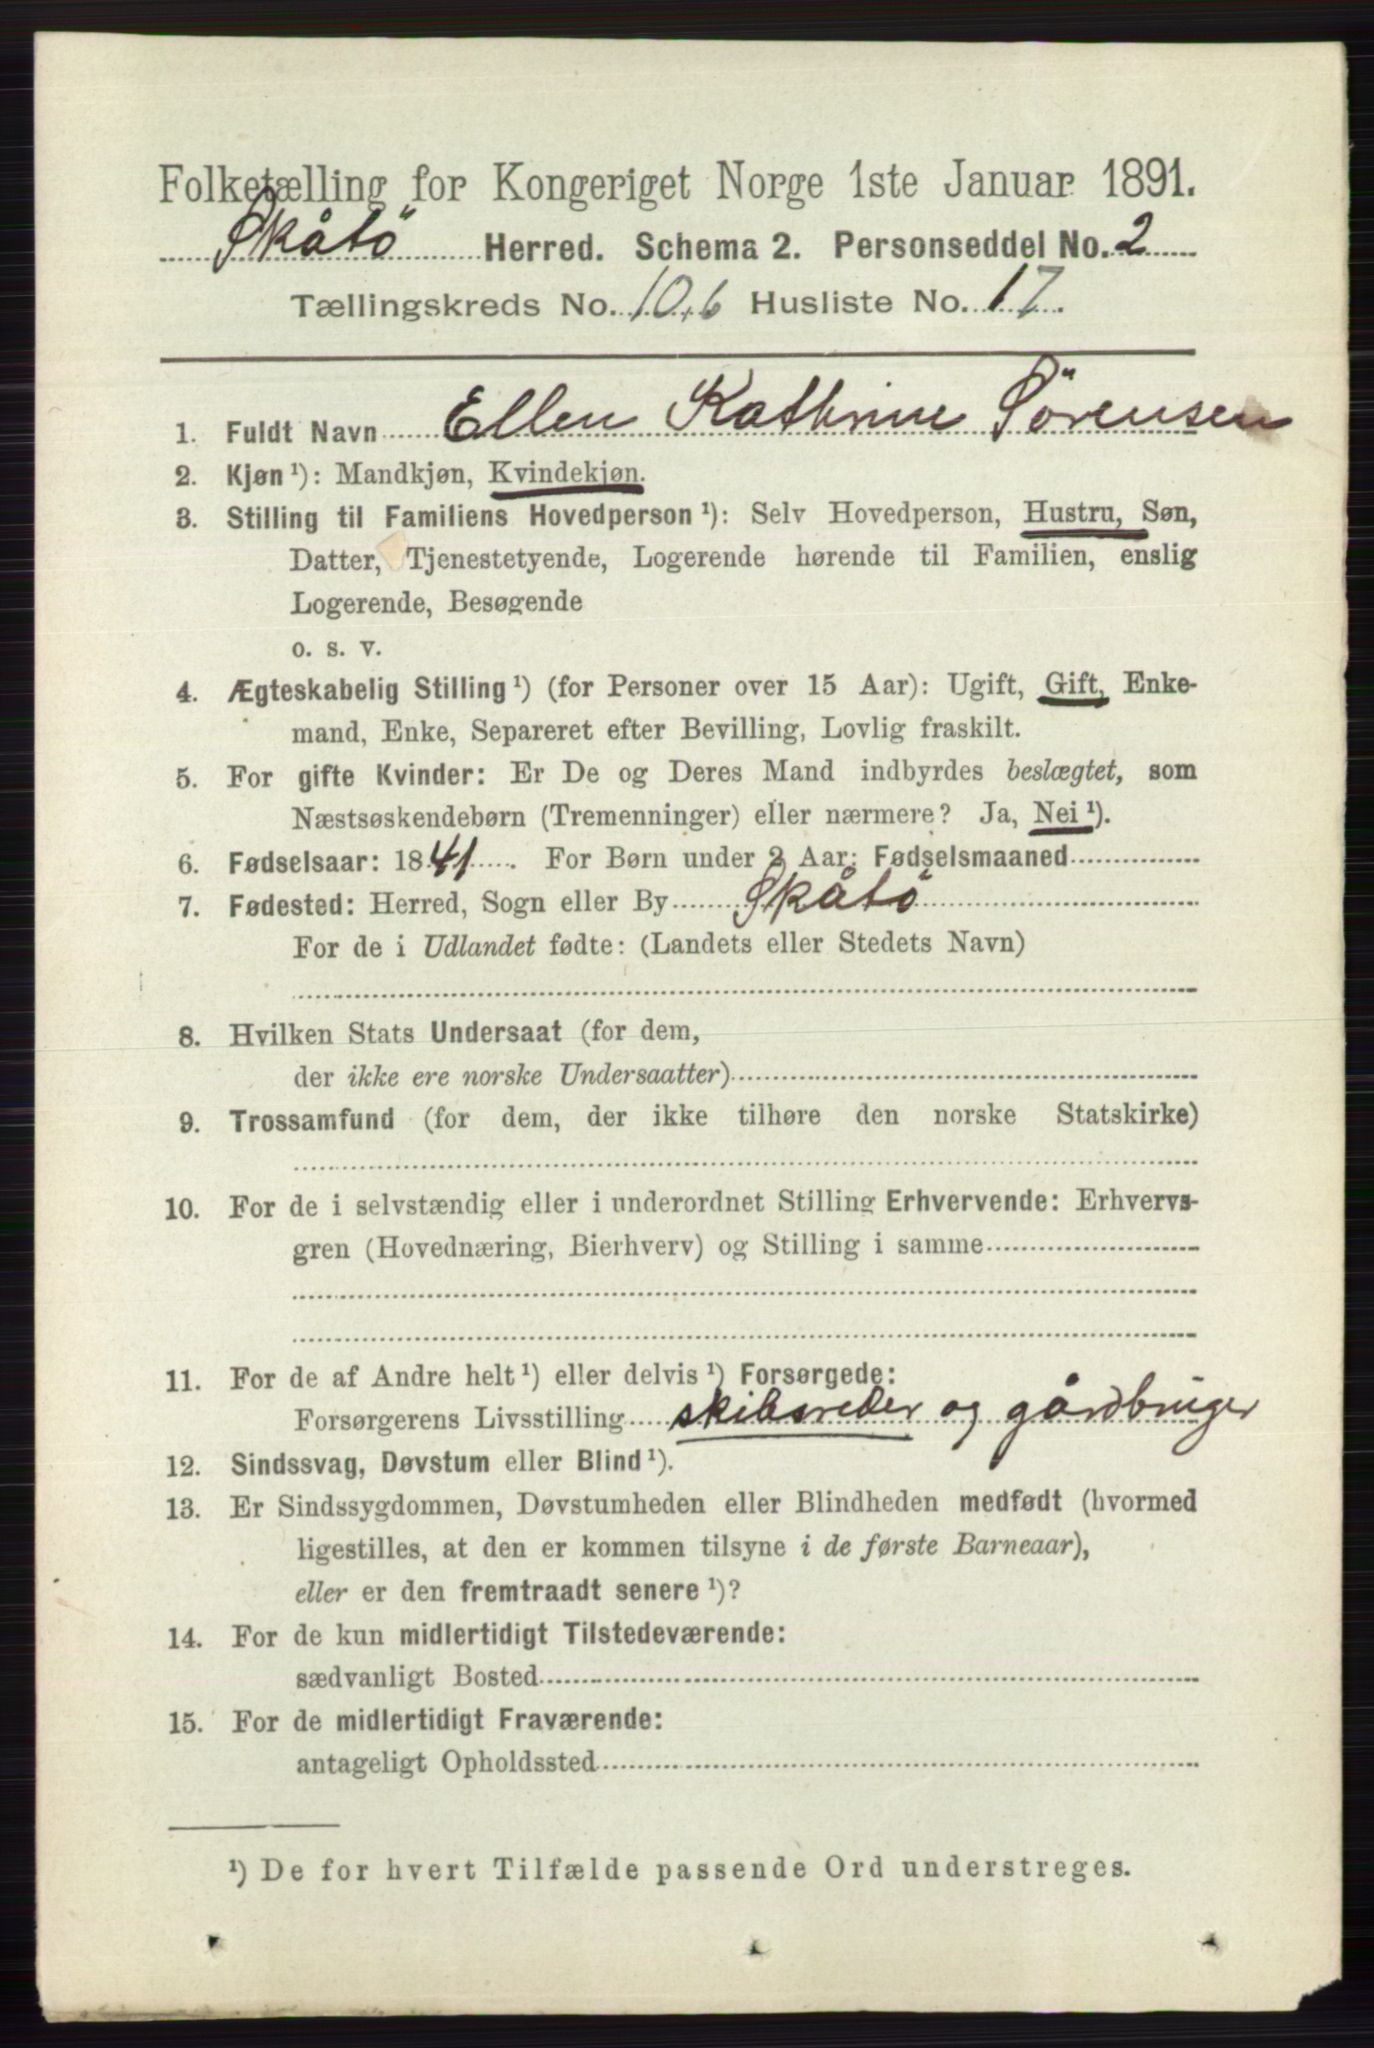 Folketælling for Kongeriget Norge 1ste Januar 1891.
Skåtö Herred. Schema 2. Personseddel No. 2
Tællingskreds No. 10,b Husliste No. 17.
1. Fuldt Navn Ellen Kathrine Sörensen
2. Kjøn ¹): Mandkjøn, Kvindekjøn.
3. Stilling til Familiens Hovedperson ¹): Selv Hovedperson, Hustru, Søn,
Datter, Tjenestetyende, Logerende hørende til Familien, enslig
Logerende, Besøgende
o. s. v.
4. Ægteskabelig Stilling ¹) (for Personer over 15 Aar): Ugift, Gift, Enke-
mand, Enke, Separeret efter Bevilling, Lovlig fraskilt.
5. For gifte Kvinder: Er De og Deres Mand indbyrdes beslægtet, som
Næstsøskendebørn (Tremenninger) eller nærmere? Ja, Nei ¹).
6. Fødselsaar: 1841. For Børn under 2 Aar: Fødselsmaaned
7. Fødested: Herred, Sogn eller By Skåtö
For de i Udlandet fødte: (Landets eller Stedets Navn)
8. Hvilken Stats Undersaat (for dem,
der ikke ere norske Undersaatter)
9. Trossamfund (for dem, der ikke tilhøre den norske Statskirke)
10. For de i selvstændig eller i underordnet Stilling Erhvervende: Erhvervs-
gren (Hovednæring, Bierhverv) og Stilling i samme
11. For de af Andre helt ¹) eller delvis ¹) Forsørgede:
Forsørgerens Livsstilling skibsreder og gårdbruger
12. Sindssvag, Døvstum eller Blind ¹).
13. Er Sindssygdommen, Døvstumheden eller Blindheden medfødt (hvormed
ligestilles, at den er kommen tilsyne i de første Barneaar),
eller er den fremtraadt senere ¹)?
14. For de kun midlertidigt Tilstedeværende:
sædvanligt Bosted
15. For de midlertidigt Fraværende:
antageligt Opholdssted
¹) De for hvert Tilfælde passende Ord understreges.